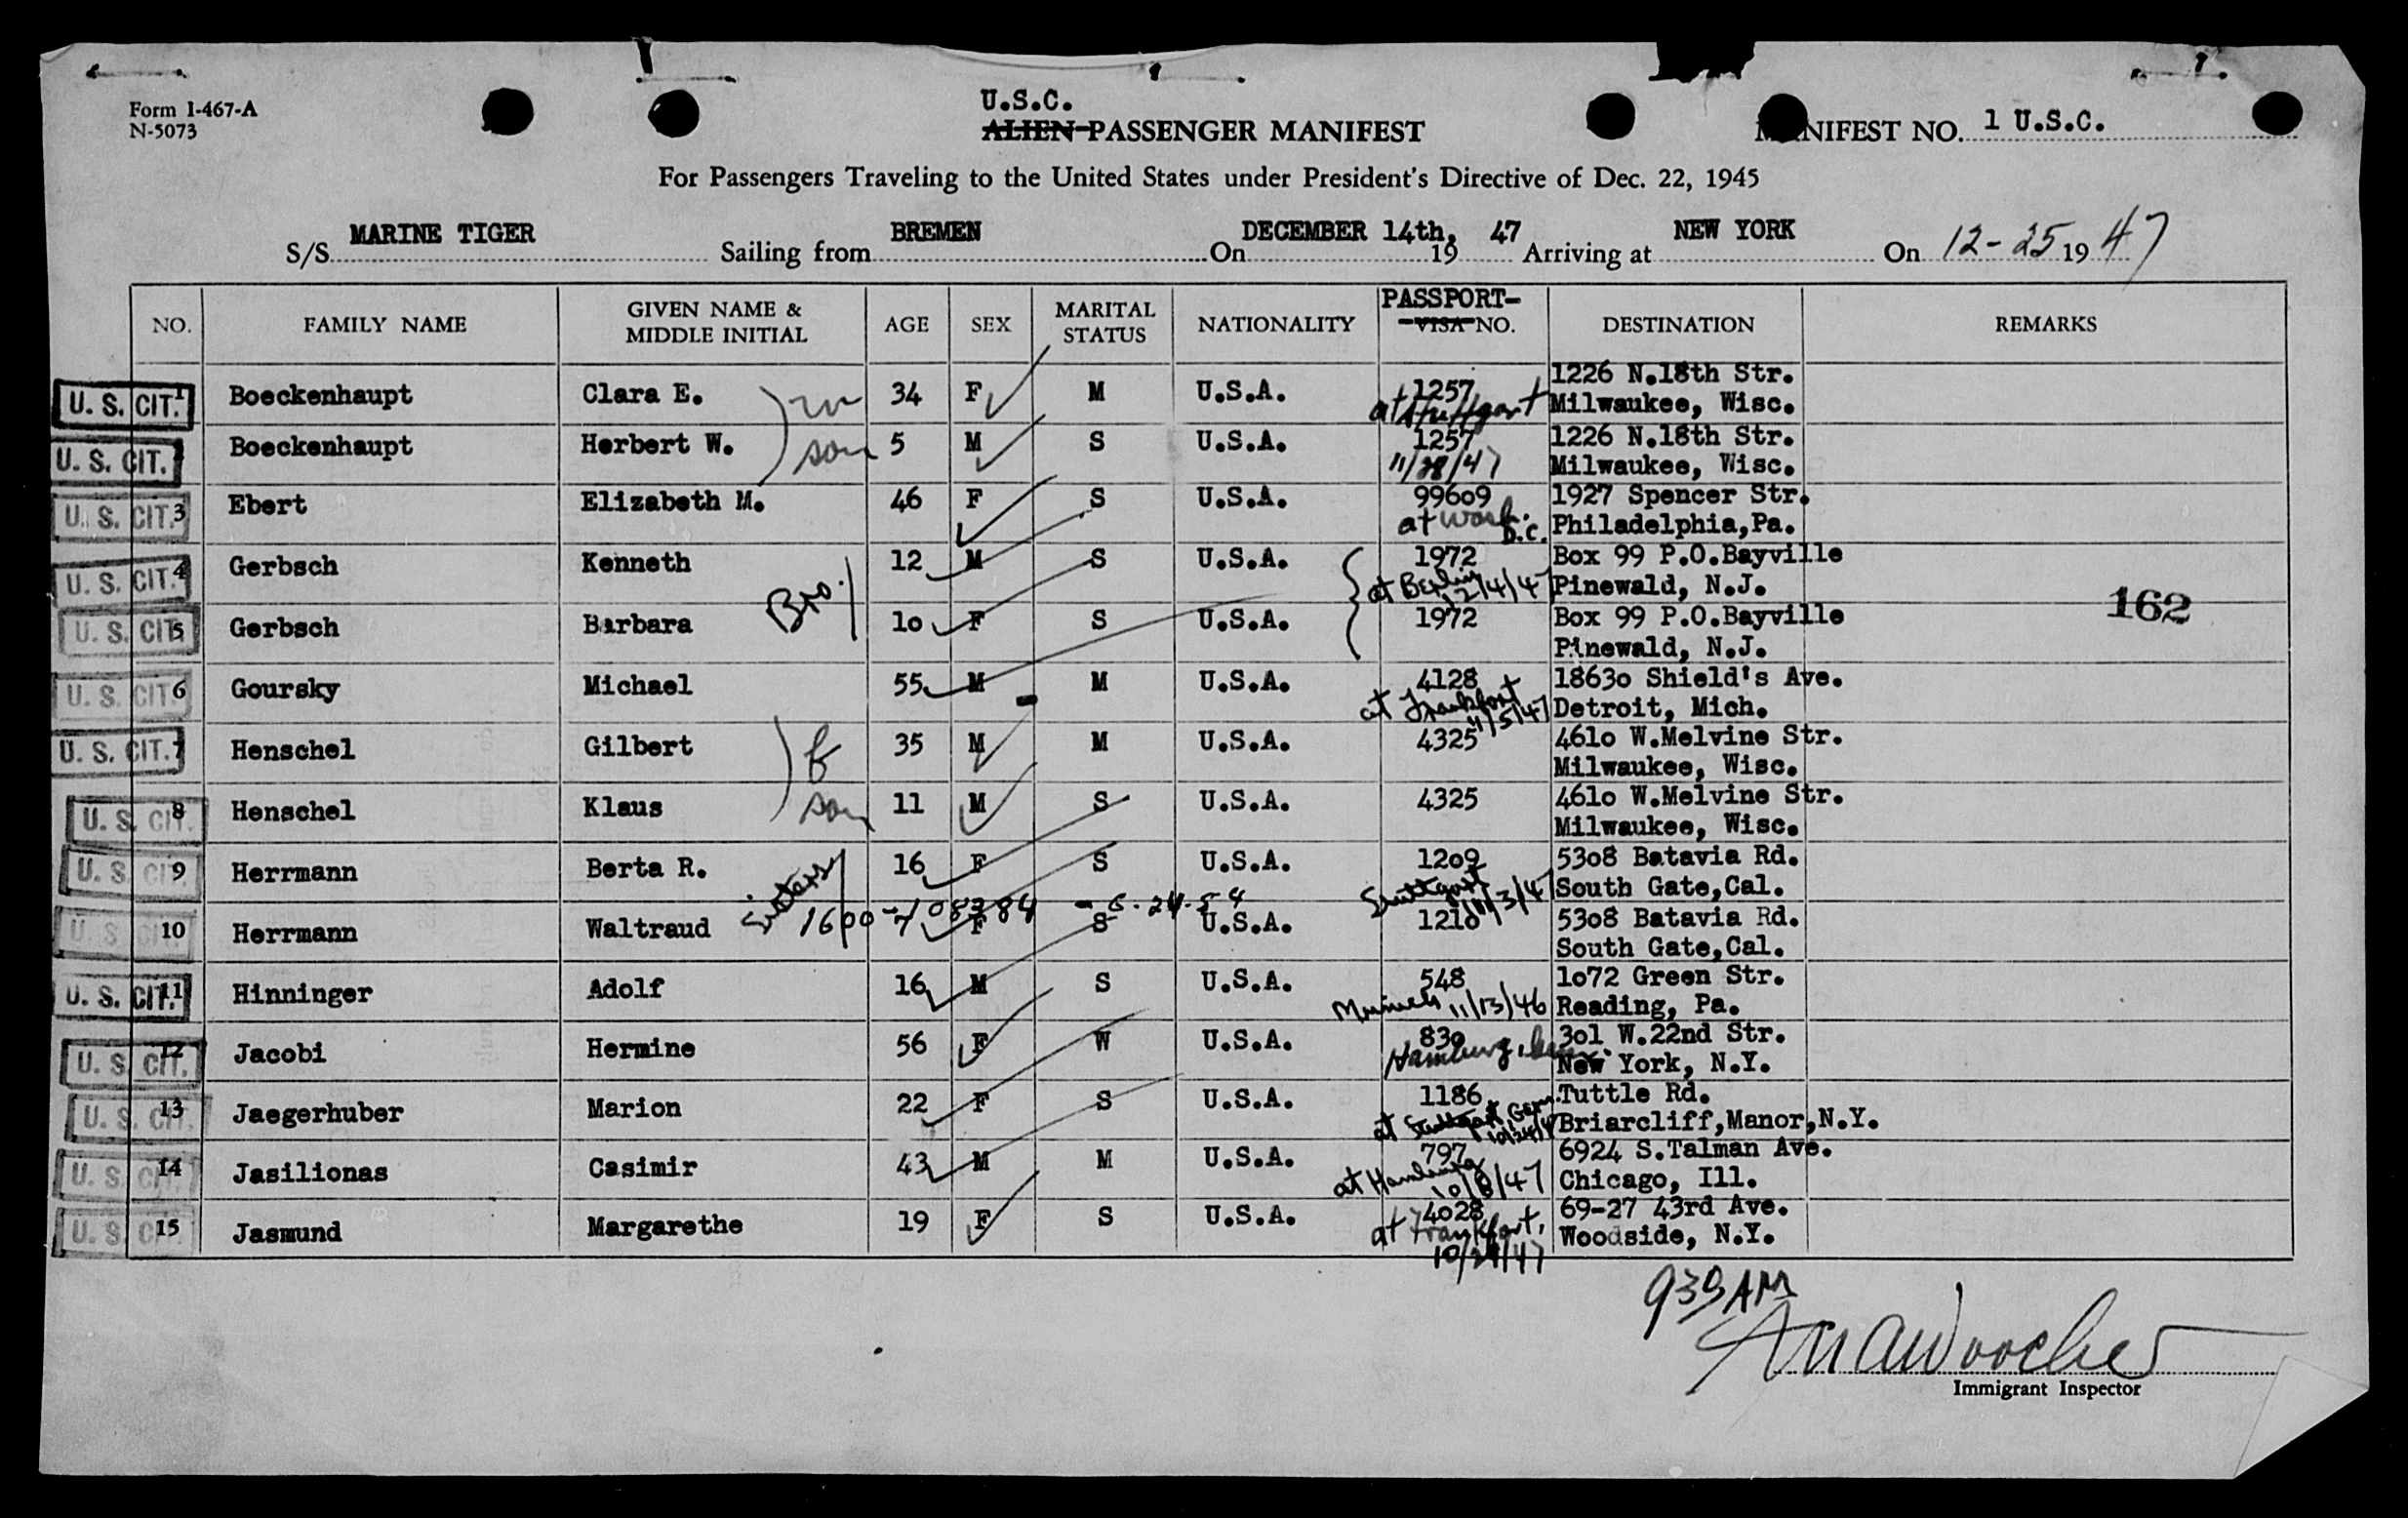 Form I-467-A
N-5073
U.S.C.
ALIEN PASSENGER MANIFEST
MANIFEST NO. 1 U.S.C.
For Passengers Traveling to the United States under President's Directive of Dec. 22, 1945
S/S MARINE TIGER Sailing from BREMEN On DECEMBER 14th, 19 47 Arriving at NEW YORK On 12-25 19 47
NO. FAMILY NAME GIVEN NAME & MIDDLE INITIAL AGE SEX MARITAL STATUS NATIONALITY PASSPORT- VISA NO. DESTINATION REMARKS
U. S. CIT. 1 Boeckenhaupt Clara E. m 34 F M U.S.A. 1257 1226 N.18th Str.
at Stuttgart Milwaukee, Wisc.
U. S. CIT. Boeckenhaupt Herbert W. son 5 M S U.S.A. 1257 1226 N.18th Str.
11/28/47 Milwaukee, Wisc.
U. S. CIT. 3 Ebert Elizabeth M. 46 F S U.S.A. 99609 1927 Spencer Str.
at Wash. D.C. Philadelphia,Pa.
U. S. CIT. 4 Gerbsch Kenneth 12 M S U.S.A. 1972 Box 99 P.O.Bayville
Bro. at Berlin 12/4/47 Pinewald, N.J.
U. S. CIT. 5 Gerbsch Barbara 1o F S U.S.A. 1972 Box 99 P.O.Bayville
Pinewald, N.J.
162
U. S. CIT. 6 Goursky Michael 55 M M U.S.A. 4128 1863o Shield's Ave.
at Frankfort 11/5/47 Detroit, Mich.
U. S. CIT. 7 Henschel Gilbert f 35 M M U.S.A. 4325 461o W.Melvine Str.
Milwaukee, Wisc.
U. S. CIT. 8 Henschel Klaus son 11 M S U.S.A. 4325 461o W.Melvine Str.
Milwaukee, Wisc.
U. S. CIT. 9 Herrmann Berta R. 16 F S U.S.A. 12o9 53o8 Batavia Rd.
Sisters Stuttgart 11/3/47 South Gate,Cal.
1600-108384 - 6-24-54
U. S. CIT. 10 Herrmann Waltraud 7 F S U.S.A. 121o 53o8 Batavia Rd.
South Gate,Cal.
U. S. CIT. 11 Hinninger Adolf 16 M S U.S.A. 548 1o72 Green Str.
Munich 11/13/46 Reading, Pa.
U. S. CIT. 12 Jacobi Hermine 56 F W U.S.A. 83o 3o1 W.22nd Str.
Hamburg, New York, N.Y.
U. S. CIT. 13 Jaegerhuber Marion 22 F S U.S.A. 1186 Tuttle Rd.
at Stuttgart, Germ. Briarcliff,Manor,N.Y.
U. S. CIT. 14 Jasilionas Casimir 43 M M U.S.A. 797 6924 S.Talman Ave.
at Hamburg 10/8/47 Chicago, Ill.
U. S. CIT. 15 Jasmund Margarethe 19 F S U.S.A. 4o28 69-27 43rd Ave.
at Frankfort, Woodside, N.Y.
939 AM
Immigrant Inspector